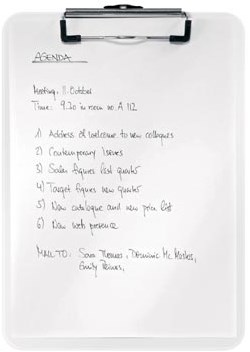 AGENDA
Meeting: 11. October
Time: 9.20 in room no. A 112
1) Address of welcome to new collegues
2) Contemporary Issues
3) Sales figures last quarter
4) Target figures new quarter
5) New catalogue and new price list
6) New web presence
MAIL TO: Sam Thomas, Dominic Mc
Emily